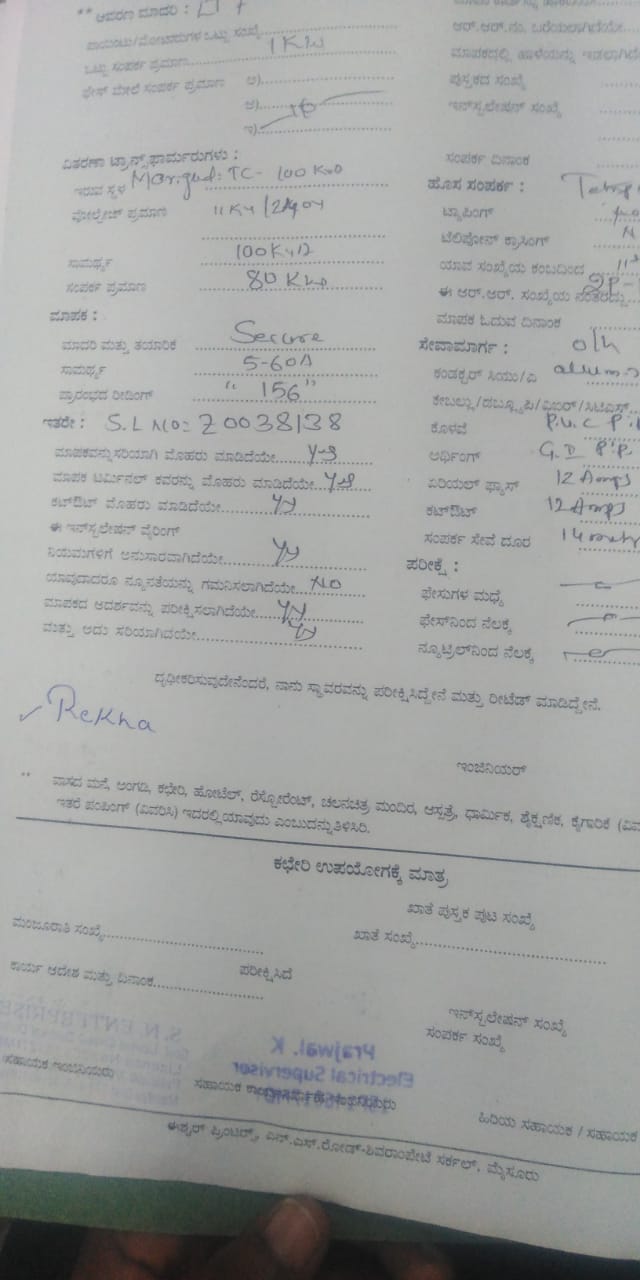 ** ಆವರಣ ಮಾದರಿ : LT
ಪಾಯಿಂಟು/ಮೋಟಾರುಗಳ ಒಟ್ಟು ಸಂಖ್ಯೆ
ಒಟ್ಟು ಸಂಪರ್ಕ ಪ್ರಮಾಣ 1 KW
ಫೇಸ್ ಮೇಲೆ ಸಂಪರ್ಕ ಪ್ರಮಾಣ ಅ)
ಆ)
ಇ)
ವಿತರಣಾ ಟ್ರಾನ್ಸ್‌ಫಾರ್ಮರುಗಳು :
ಇರುವ ಸ್ಥಳ TC- 100
ವೋಲ್ಟೇಜ್ ಪ್ರಮಾಣ 11 KV
ಸಾಮರ್ಥ್ಯ 100
ಸಂಪರ್ಕ ಪ್ರಮಾಣ 80 KW
ಮಾಪಕ :
ಮಾದರಿ ಮತ್ತು ತಯಾರಿಕೆ Secure
ಸಾಮರ್ಥ್ಯ 5-60A
ಪ್ರಾರಂಭದ ರೀಡಿಂಗ್ " 156 "
ಇತರೇ : S.L NO: Z0038138
ಮಾಪಕವನ್ನು ಸರಿಯಾಗಿ ಮೊಹರು ಮಾಡಿದೆಯೇ yes
ಮಾಪಕ ಟರ್ಮಿನಲ್ ಕವರನ್ನು ಮೊಹರು ಮಾಡಿದೆಯೇ yes
ಕಟ್‌ಔಟ್ ಮೊಹರು ಮಾಡಿದೆಯೇ yes
ಈ ಇನ್‌ಸ್ಟಲೇಷನ್ ವೈರಿಂಗ್
ನಿಯಮಗಳಿಗೆ ಅನುಸಾರವಾಗಿದೆಯೇ yes
ಯಾವುದಾದರೂ ನ್ಯೂನತೆಯನ್ನು ಗಮನಿಸಲಾಗಿದೆಯೇ NO
ಮಾಪಕದ ಆದರ್ಶವನ್ನು ಪರೀಕ್ಷಿಸಲಾಗಿದೆಯೇ yes
ಮತ್ತು ಅದು ಸರಿಯಾಗಿದೆಯೇ yes
ಆರ್.ಆರ್.ನಂ. ಬರೆಯಲಾಗಿದೆಯೇ
ಮಾಪಕದಲ್ಲಿ ಹಾಳೆಯನ್ನು ಇಡಲಾಗಿದೆ
ಪುಸ್ತಕದ ಸಂಖ್ಯೆ
ಇನ್‌ಸ್ಟಲೇಷನ್ ಸಂಖ್ಯೆ
ಸಂಪರ್ಕ ದಿನಾಂಕ
ಹೊಸ ಸಂಪರ್ಕ :
ಟ್ಯಾಪಿಂಗ್
ಟೆಲಿಫೋನ್ ಕ್ರಾಸಿಂಗ್
ಯಾವ ಸಂಖ್ಯೆಯ ಕಂಬದಿಂದ
ಈ ಆರ್.ಆರ್. ಸಂಖ್ಯೆಯ ನಂತರದ್ದು
ಮಾಪಕ ಓದುವ ದಿನಾಂಕ
ಸೇವಾಮಾರ್ಗ : O/h
ಕಂಡಕ್ಟರ್ ಸಿಯು/ಎ
ಕೇಬಲ್ಲು/ಡಬ್ಲ್ಯೂಪಿ/ವಿಐಆರ್/ಸಿಟಿಎಸ್
ಕೊಳವೆ P.V.C
ಅರ್ಥಿಂಗ್ G.I
ಏರಿಯಲ್ ಫ್ಯೂಸ್ 12 Amps
ಕಟ್‌ಔಟ್ 12 Amps
ಸಂಪರ್ಕ ಸೇವೆ ದೂರ 14
ಪರೀಕ್ಷೆ :
ಫೇಸುಗಳ ಮಧ್ಯೆ
ಫೇಸ್‌ನಿಂದ ನೆಲಕ್ಕೆ
ನ್ಯೂಟ್ರಿಲ್‌ನಿಂದ ನೆಲಕ್ಕೆ
ದೃಢೀಕರಿಸುವುದೇನೆಂದರೆ, ನಾನು ಸ್ಥಾವರವನ್ನು ಪರೀಕ್ಷಿಸಿದ್ದೇನೆ ಮತ್ತು ರೀಟೆಡ್ ಮಾಡಿದ್ದೇನೆ.
Rekha
ಇಂಜಿನಿಯರ್
** ವಾಸದ ಮನೆ, ಅಂಗಡಿ, ಕಛೇರಿ, ಹೋಟೆಲ್, ರೆಸ್ಟೋರೆಂಟ್, ಚಲನಚಿತ್ರ ಮಂದಿರ, ಆಸ್ಪತ್ರೆ, ಧಾರ್ಮಿಕ, ಶೈಕ್ಷಣಿಕ, ಕೈಗಾರಿಕೆ
ಇತರೆ ಪಂಪಿಂಗ್ (ವಿವರಿಸಿ) ಇದರಲ್ಲಿ ಯಾವುದು ಎಂಬುದನ್ನು ತಿಳಿಸಿರಿ.
ಕಛೇರಿ ಉಪಯೋಗಕ್ಕೆ ಮಾತ್ರ
ಖಾತೆ ಪುಸ್ತಕ ಪುಟ ಸಂಖ್ಯೆ
ಮಂಜೂರಾತಿ ಸಂಖ್ಯೆ
ಖಾತೆ ಸಂಖ್ಯೆ
ಕಾರ್ಯ ಆದೇಶ ಮತ್ತು ದಿನಾಂಕ
ಪರೀಕ್ಷಿಸಿದೆ
ಇನ್‌ಸ್ಟಲೇಷನ್ ಸಂಖ್ಯೆ
ಸಂಪರ್ಕ ಸಂಖ್ಯೆ
S.N. ENTERPRISE
Prajwal. K
Electrical Supervisor
ಸಹಾಯಕ ಇಂಜಿನಿಯರು
ಹಿರಿಯ ಸಹಾಯಕ / ಸಹಾಯಕ
ಈಶ್ವರ್ ಪ್ರಿಂಟರ್ಸ್, ಎನ್.ಎಸ್.ರೋಡ್-ಶಿವರಾಂಪೇಟೆ ಸರ್ಕಲ್, ಮೈಸೂರು